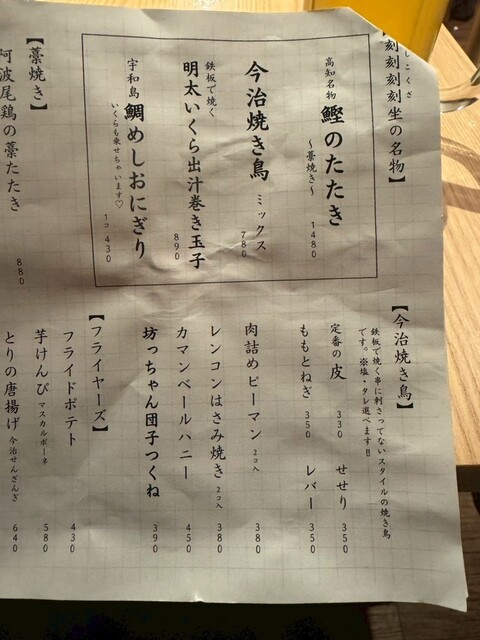 しこくざ
刻刻刻刻坐の名物】
高知名物
鰹のたたき
～藁焼き～
1480
今治焼き鳥
ミックス
780
鉄板で焼く
明太いくら出汁巻き玉子
890
宇和島
鯛めしおにぎり
いくらも乗せちゃいます♡
1コ 430
【藁焼き】
阿波尾鶏の藁たたき
880
【今治焼き鳥】
鉄板で焼く串に刺さってないスタイルの焼き鳥
です。※塩・タレ選べます!!
定番の皮 330
せせり 350
ももとねぎ 350
レバー 350
肉詰めピーマン 2コ入 380
レンコンはさみ焼き 2コ入 380
カマンベールハニー 450
坊っちゃん団子つくね 390
【フライヤーズ】
フライドポテト 430
芋けんぴ マスカルポーネ 580
とりの唐揚げ 今治せんざんぎ 640